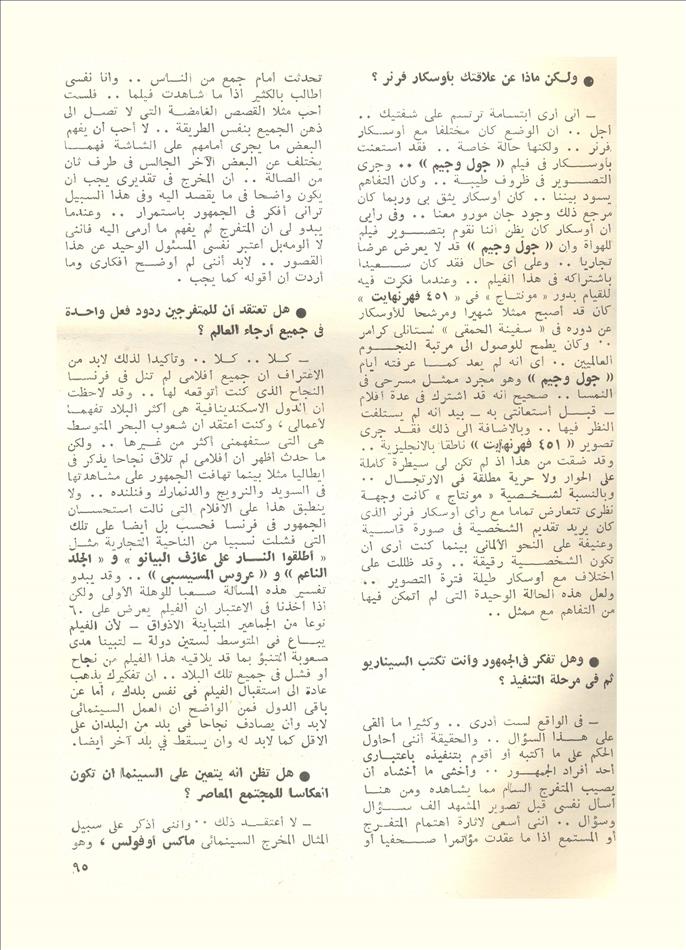 ● ولكن ماذا عن علاقتك بأوسكار فرنر ؟
ـ انى أرى ابتسامة ترتسم على شفتيك ..
أجل .. ان الوضع كان مختلفا مع أوسكار
فرنر .. ولكنها حالة خاصة .. فقد استعنت
بأوسكار فى فيلم « جول وجيم » .. وجرى
التصوير فى ظروف طيبة .. وكان التفاهم
يسود بيننا .. كان أوسكار يثق بى وربما كان
مرجع ذلك وجود جان مورو معنا .. وفى رأيى
أن أوسكار كان يظن اننا نقوم بتصوير فيلم
للهواة وان « جول وجيم » قد لا يعرض عرضا
تجاريا .. وعلى أى حال فقد كان سعيدا
باشتراكه فى هذا الفيلم .. وعندما فكرت فيه
للقيام بدور « مونتاج » فى « ٤٥١ فهرنهايت »
كان قد أصبح ممثلا شهيرا ومرشحا للأوسكار
عن دوره فى « سفينة الحمقى » لستانلى كرامر
.. وكان يطمح للوصول الى مرتبة النجوم
العالميين .. أى انه لم يعد كما عرفته أيام
« جول وجيم » وهو مجرد ممثل مسرحى فى
النمسا .. صحيح أنه قد اشترك فى عدة أفلام
ـ قبل استعانتى به ـ بيد انه لم يستلفت
النظر فيها .. وبالاضافة الى ذلك فقد جرى
تصوير « ٤٥١ فهرنهايت » ناطقا بالانجليزية ..
وقد ضقت من هذا اذ لم تكن لى سيطرة كاملة
على الحوار ولا حرية مطلقة فى الارتجال ..
وبالنسبة لشخصية « مونتاج » كانت وجهة
نظرى تتعارض تماما مع رأى أوسكار فرنر الذى
كان يريد تقديم الشخصية فى صورة قاسية
وعنيفة على النحو الألمانى بينما كنت أرى ان
تكون الشخصية رقيقة .. وقد ظللت على
اختلاف مع أوسكار طيلة فترة التصوير ..
ولعل هذه الحالة الوحيدة التى لم أتمكن فيها
من التفاهم مع ممثل ..
● وهل تفكر فى الجمهور وأنت تكتب السيناريو
ثم فى مرحلة التنفيذ ؟
ـ فى الواقع لست أدرى .. وكثيرا ما ألقى
على هذا السؤال .. والحقيقة أننى أحاول
الحكم على ما أكتبه أو أقوم بتنفيذه باعتبارى
أحد أفراد الجمهور .. وأخشى ما أخشاه أن
يصيب المتفرج السأم مما يشاهده ومن هنا
أسأل نفسى قبل تصوير المشهد الف سؤال
وسؤال .. اننى أسعى لاثارة اهتمام المتفرج
أو المستمع اذا ما عقدت مؤتمرا صحفيا أو
تحدثت أمام جمع من الناس .. وأنا نفسى
أطالب بالكثير اذا ما شاهدت فيلما .. فلست
أحب مثلا القصص الغامضة التى لا تصل الى
ذهن الجميع بنفس الطريقة .. لا أحب أن يفهم
البعض ما يجرى أمامهم على الشاشة فهما
يختلف عن البعض الآخر الجالس فى طرف ثان
من الصالة .. ان المخرج فى تقديرى يجب أن
يكون واضحا فى ما يقصد اليه وفى هذا السبيل
ترانى أفكر فى الجمهور باستمرار .. وعندما
يبدو لى ان المتفرج لم يفهم ما أرمى اليه فاننى
لا ألومه بل أعتبر نفسى المسئول الوحيد عن هذا
القصور .. لابد أننى لم أوضح أفكارى وما
أردت أن أقوله كما يجب .
● هل تعتقد أن للمتفرجين ردود فعل واحدة
فى جميع أرجاء العالم ؟
ـ كلا .. كلا .. وتأكيدا لذلك لابد من
الاعتراف ان جميع أفلامى لم تنل فى فرنسا
النجاح الذى كنت أتوقعه لها .. وقد لاحظت
ان الدول الاسكندينافية هى أكثر البلاد تفهما
لأعمالى ، وكنت أعتقد ان شعوب البحر المتوسط
هى التى ستفهمنى أكثر من غيرها .. ولكن
ما حدث أظهر ان أفلامى لم تلاق نجاحا يذكر فى
ايطاليا مثلا بينما تهافت الجمهور على مشاهدتها
فى السويد والنرويج والدنمارك وفنلنده .. ولا
ينطبق هذا على الأفلام التى نالت استحسان
الجمهور فى فرنسا فحسب بل أيضا على تلك
التى فشلت نسبيا من الناحية التجارية مثل
« أطلقوا النار على عازف البيانو » و « الجلد
الناعم » و « عروس المسيسبى » .. وقد يبدو
تفسير هذه المسألة صعبا للوهلة الأولى ولكن
اذا أخذنا فى الاعتبار ان الفيلم يعرض على ٦٠
نوعا من الجماهير المتباينة الأذواق ـ لأن الفيلم
يباع فى المتوسط لستين دولة ـ لتبينا مدى
صعوبة التنبؤ بما قد يلاقيه هذا الفيلم من نجاح
أو فشل فى جميع تلك البلاد .. ان تفكيرك يذهب
عادة الى استقبال الفيلم فى نفس بلدك ، أما عن
باقى الدول فمن الواضح ان العمل السينمائى
لابد وأن يصادف نجاحا فى بلد من البلدان على
الأقل كما لابد له وأن يسقط فى بلد آخر أيضا.
● هل تظن أنه يتعين على السينما أن تكون
انعكاسا للمجتمع المعاصر ؟
ـ لا أعتقد ذلك .. واننى أذكر على سبيل
المثال المخرج السينمائى ماكس أوفولس ، وهو
٩٥